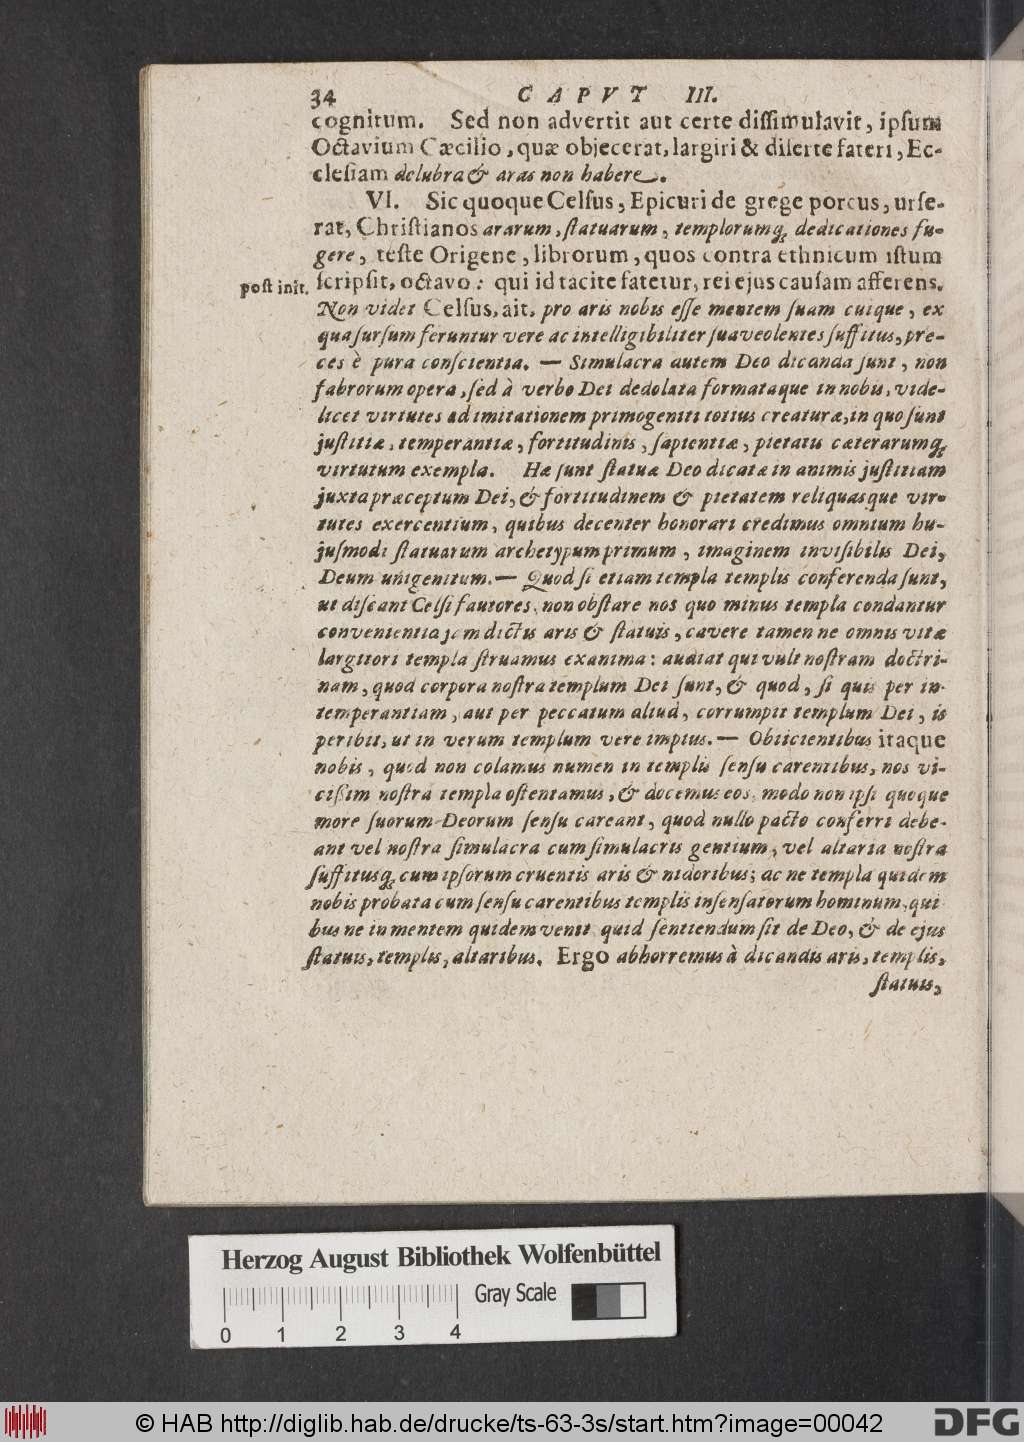 34 CAPVT III.
cognitum. Sed non advertit aut certe diſſimulavit, ipſum
Octavium Cæcilio, quæ objecerat, largiri & diſerte fateri, Ec-
cleſiam delubra & aras non habere.
VI. Sic quoque Celſus, Epicuri de grege porcus, urſe-
rat, Chriſtianos ararum, ſtatuarum, templorumq; dedicationes fu-
gere, teſte Origene, librorum, quos contra ethnicum iſtum
post init. ſcripſit, octavo: qui id tacite fatetur, rei ejus cauſam afferens.
Non videt Celſus, ait, pro aris nobis eſſe mentem ſuam cuique, ex
qua ſurſum feruntur vere ac intelligibiliter ſuaveolentes ſuffitus, pre-
ces è pura conſcientia. — Simulacra autem Deo dicanda ſunt, non
fabrorum opera, ſed à verbo Dei dedolata formataque in nobis, vide-
licet virtutes ad imitationem primogeniti totius creaturæ, in quo ſunt
juſtitiæ, temperantiæ, fortitudinis, ſapientiæ, pietatis cæterarumq;
virtutum exempla. Hæ ſunt ſtatuæ Deo dicatæ in animis juſtitiam
juxta præceptum Dei, & fortitudinem & pietatem reliquasque vir-
tutes exercentium, quibus decenter honorari credimus omnium hu-
juſmodi ſtatuarum archetypum primum, imaginem inviſibilis Dei,
Deum unigenitum. — Quod ſi etiam templa templis conferenda ſunt,
ut diſcant Celſi fautores, non obſtare nos quo minus templa condantur
convenientia jam dictis aris & ſtatuis, cavere tamen ne omnis vitæ
largitori templa ſtruamus exanima: audiat qui vult noſtram doctri-
nam, quod corpora noſtra templum Dei ſunt, & quod, ſi quis per in-
temperantiam, aut per peccatum aliud, corrumpit templum Dei, is
peribit, ut in verum templum vere impius. — Obiicientibus itaque
nobis, quod non colamus numen in templis ſenſu carentibus, nos vi-
ciſſim noſtra templa oſtentamus, & docemus eos, modo non ipſi quoque
more ſuorum Deorum ſenſu careant, quod nullo pacto conferri debe-
ant vel noſtra ſimulacra cum ſimulacris gentium, vel altaria noſtra
ſuffitusq; cum ipſorum cruentis aris & nidoribus; ac ne templa quidem
nobis probata cum ſenſu carentibus templis inſenſatorum hominum, qui
bus ne in mentem quidem venit quid ſentiendum ſit de Deo, & de ejus
ſtatuis, templis, altaribus. Ergo abhorremus à dicandis aris, templis,
ſtatuis,
Herzog August Bibliothek Wolfenbüttel
Gray Scale
0 1 2 3 4
© HAB http://diglib.hab.de/drucke/ts-63-3s/start.htm?image=00042
DFG